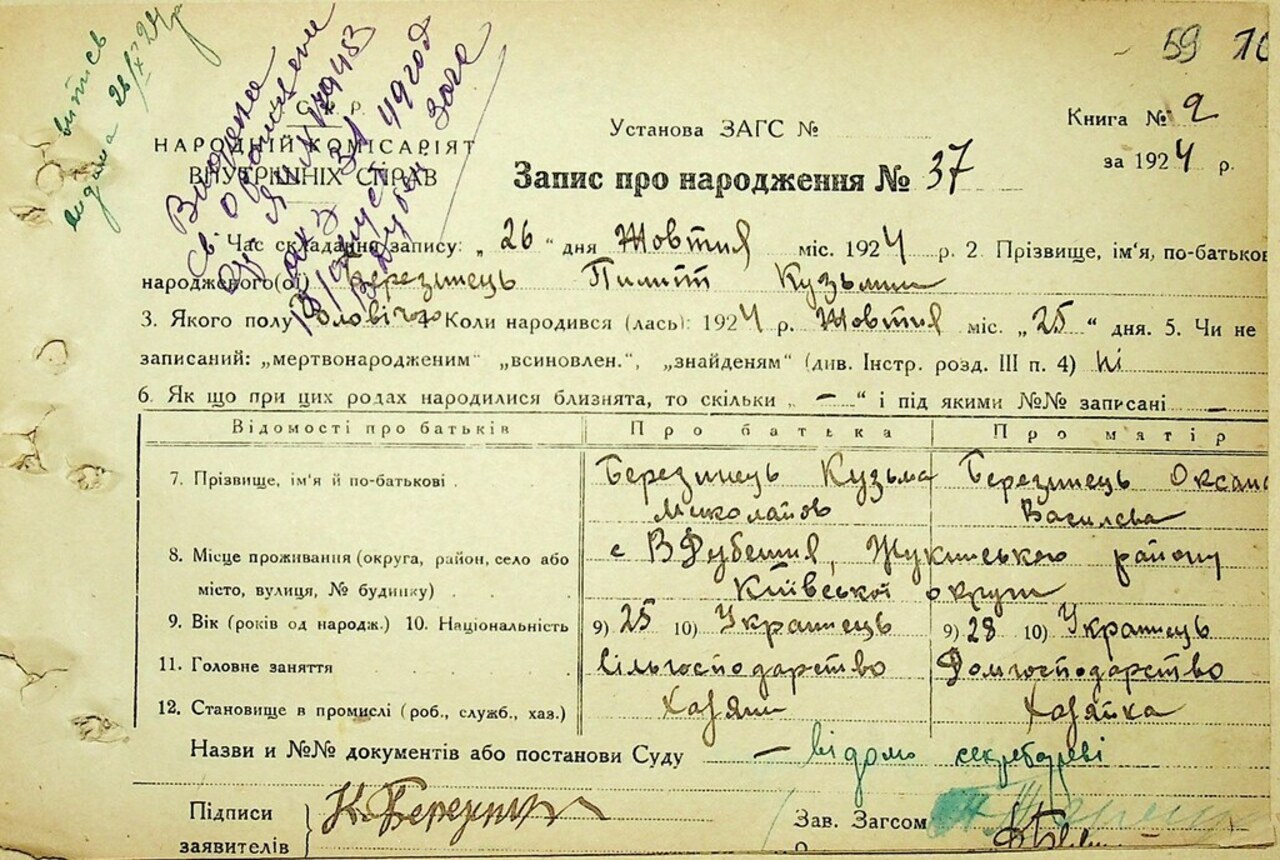 витись
видана 26/IX 24р
Видано
св. о рождении
59
Установа ЗАГС №
Книга № 2
НАРОДНІЙ КОМІСАРІЯТ
ВНУТРІШНІХ СПРАВ
за 1924 р.
Запис про народження № 37
Час складання запису: „26“ дня Жовтня міс. 1924 р. 2. Прізвище, ім'я, по-батькові
народженого(ої) Березинець Пилип Кузьмин
3. Якого полу Чоловічого 4. Коли народився (лась): 1924 р. Жовтня міс. „25“ дня. 5. Чи не
записаний: „мертвонародженим“ „всиновлен.“, „знайденям“ (див. Інстр. розд. III п. 4) Ні
6. Як що при цих родах народилися близнята, то скільки „—“ і під якими №№ записані —
Відомості про батьків Про батька Про матір
7. Прізвище, ім'я й по-батькові Березинець Кузьма Березинець Оксана
Миколайов Василева
8. Місце проживання (округа, район, село або с В Дубечня, Жукинського району
місто, вулиця, № будинку) Київської округи
9. Вік (років од народж.) 10. Національність 9) 25 10) Українець 9) 28 10) Українець
11. Головне заняття сільгосподарство Домгосподарство
12. Становище в промислі (роб., служб., хаз.) Хазяин Хазяйка
Назви и №№ документів або постанови Суду — відомо секретареві
Підписи К. Березинець Зав. Загсом
заявителів